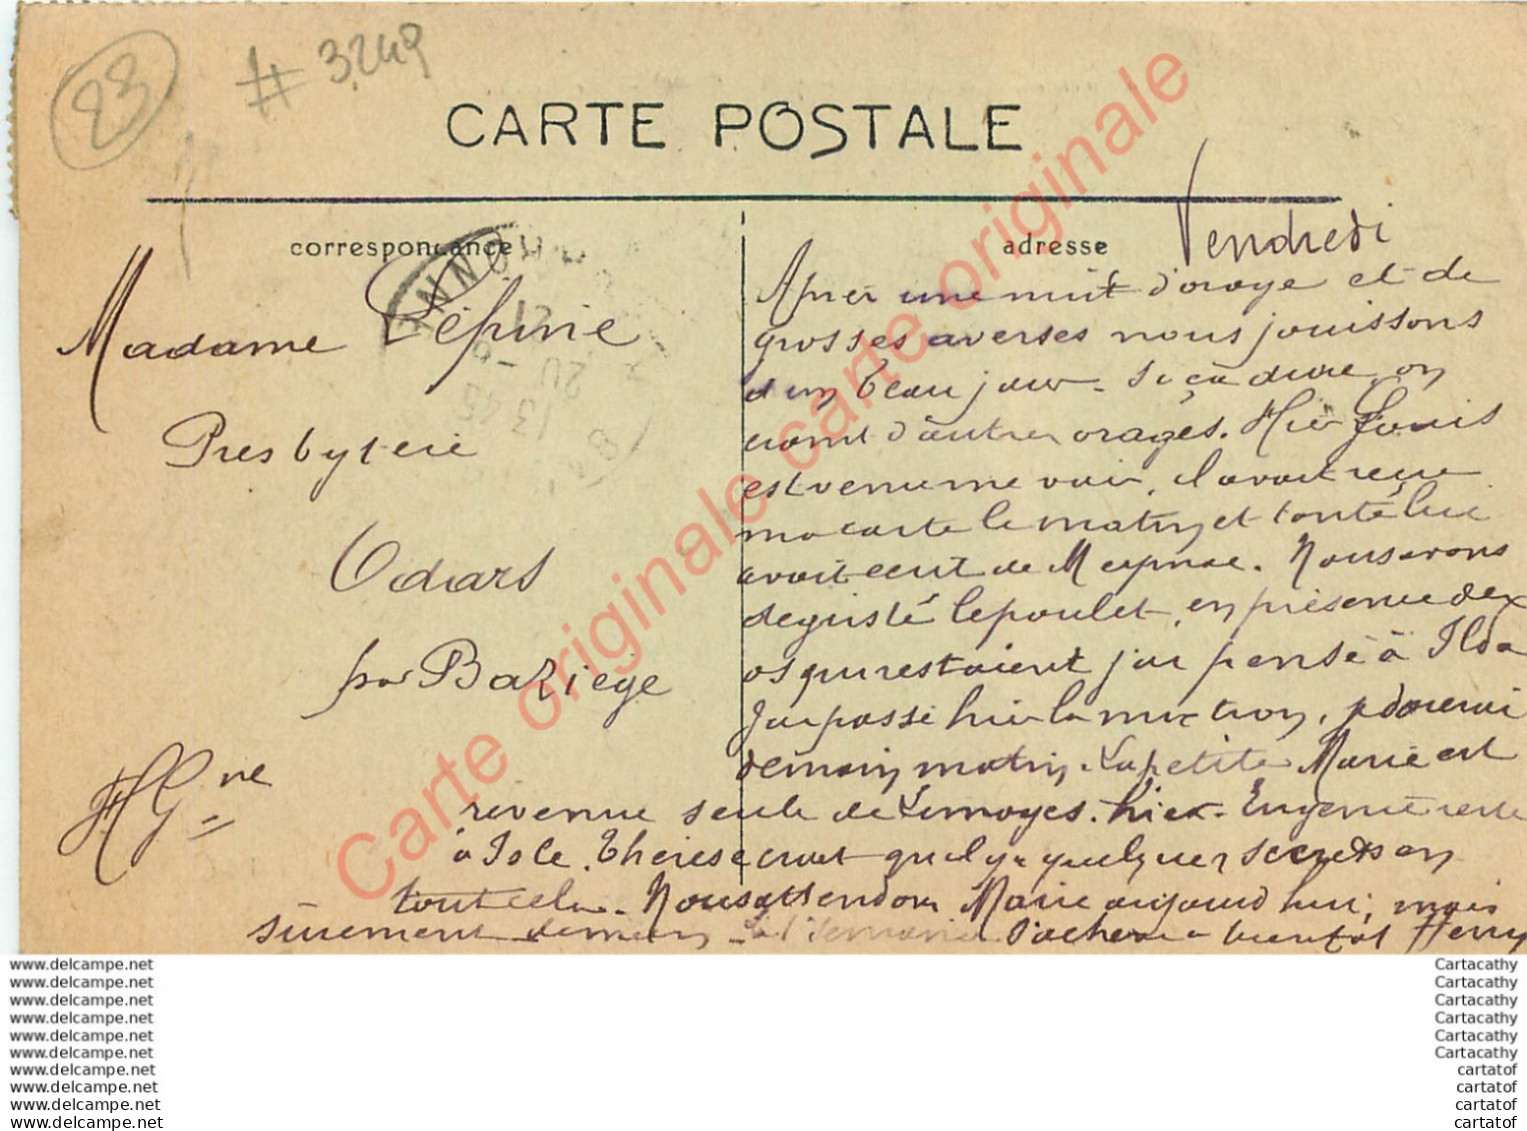 23
# 3249
CARTE POSTALE
correspondance
adresse
Vendredi
Madame Lépine
Presbytère
Odars
par Baziège
Hte Gne
Après une nuit d'orage et de
grosses averses nous jouissons
d'un beau jour - si ça dure, on
craint d'autres orages. Hier Louis
est venu me voir, il avait reçu
ma carte le matin et tonté lui
avait écrit de Meymac. Nous avons
dégusté le poulet, en présence des
os qui restaient j'ai pensé à Ilda
J'ai passé hier la
demain matin. La petite Marie est
revenue seule de Limoges. hier. Eugénie reste
à Isle. Thérèse croit qu'il y a quelques secrets en
tout cela. Nous attendons Marie aujourd'hui, mais
sûrement demain - bientôt Henry
13 45
20
Carte originale carte originale carte originale
www.delcampe.net
www.delcampe.net
www.delcampe.net
www.delcampe.net
www.delcampe.net
www.delcampe.net
www.delcampe.net
www.delcampe.net
www.delcampe.net
www.delcampe.net
Cartacathy
Cartacathy
Cartacathy
Cartacathy
Cartacathy
Cartacathy
cartatof
cartatof
cartatof
cartatof